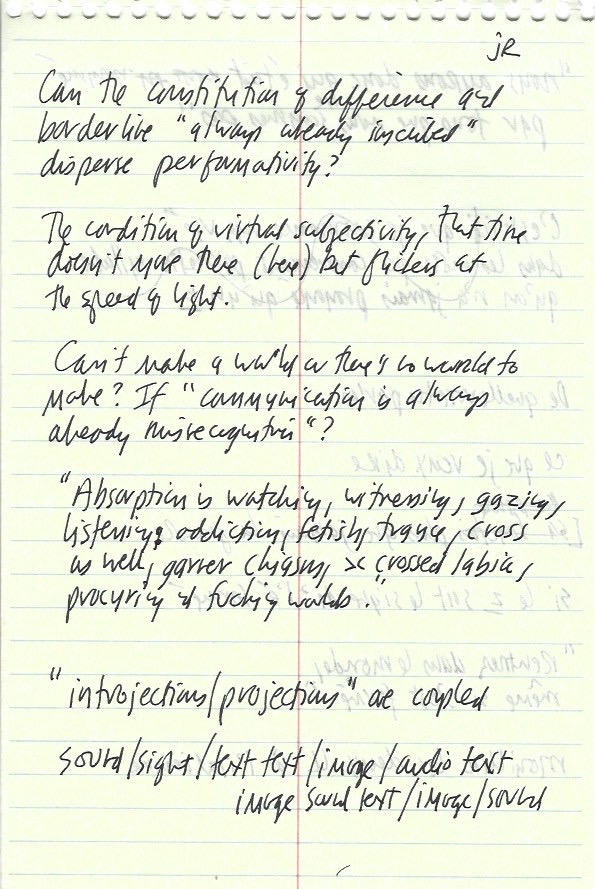 jR
Can the constitution of difference and
borderline "always already inscribed"
disperse performativity?
The condition of virtual subjectivity, that time
doesn't move there (here) but flickers at
the speed of light.
Can't make a world or there's no world to
make? If "communication is always
already misrecognition"?
"Absorption is watching, witnessing, gazing,
listening, addiction, fetish, trauma, cross
as well, garner chiasm, >< crossed labia,
procuring & fucking worlds."
"introjections/projections" are coupled
sound/sight/text text/image/audio text
image sound text/image/sound